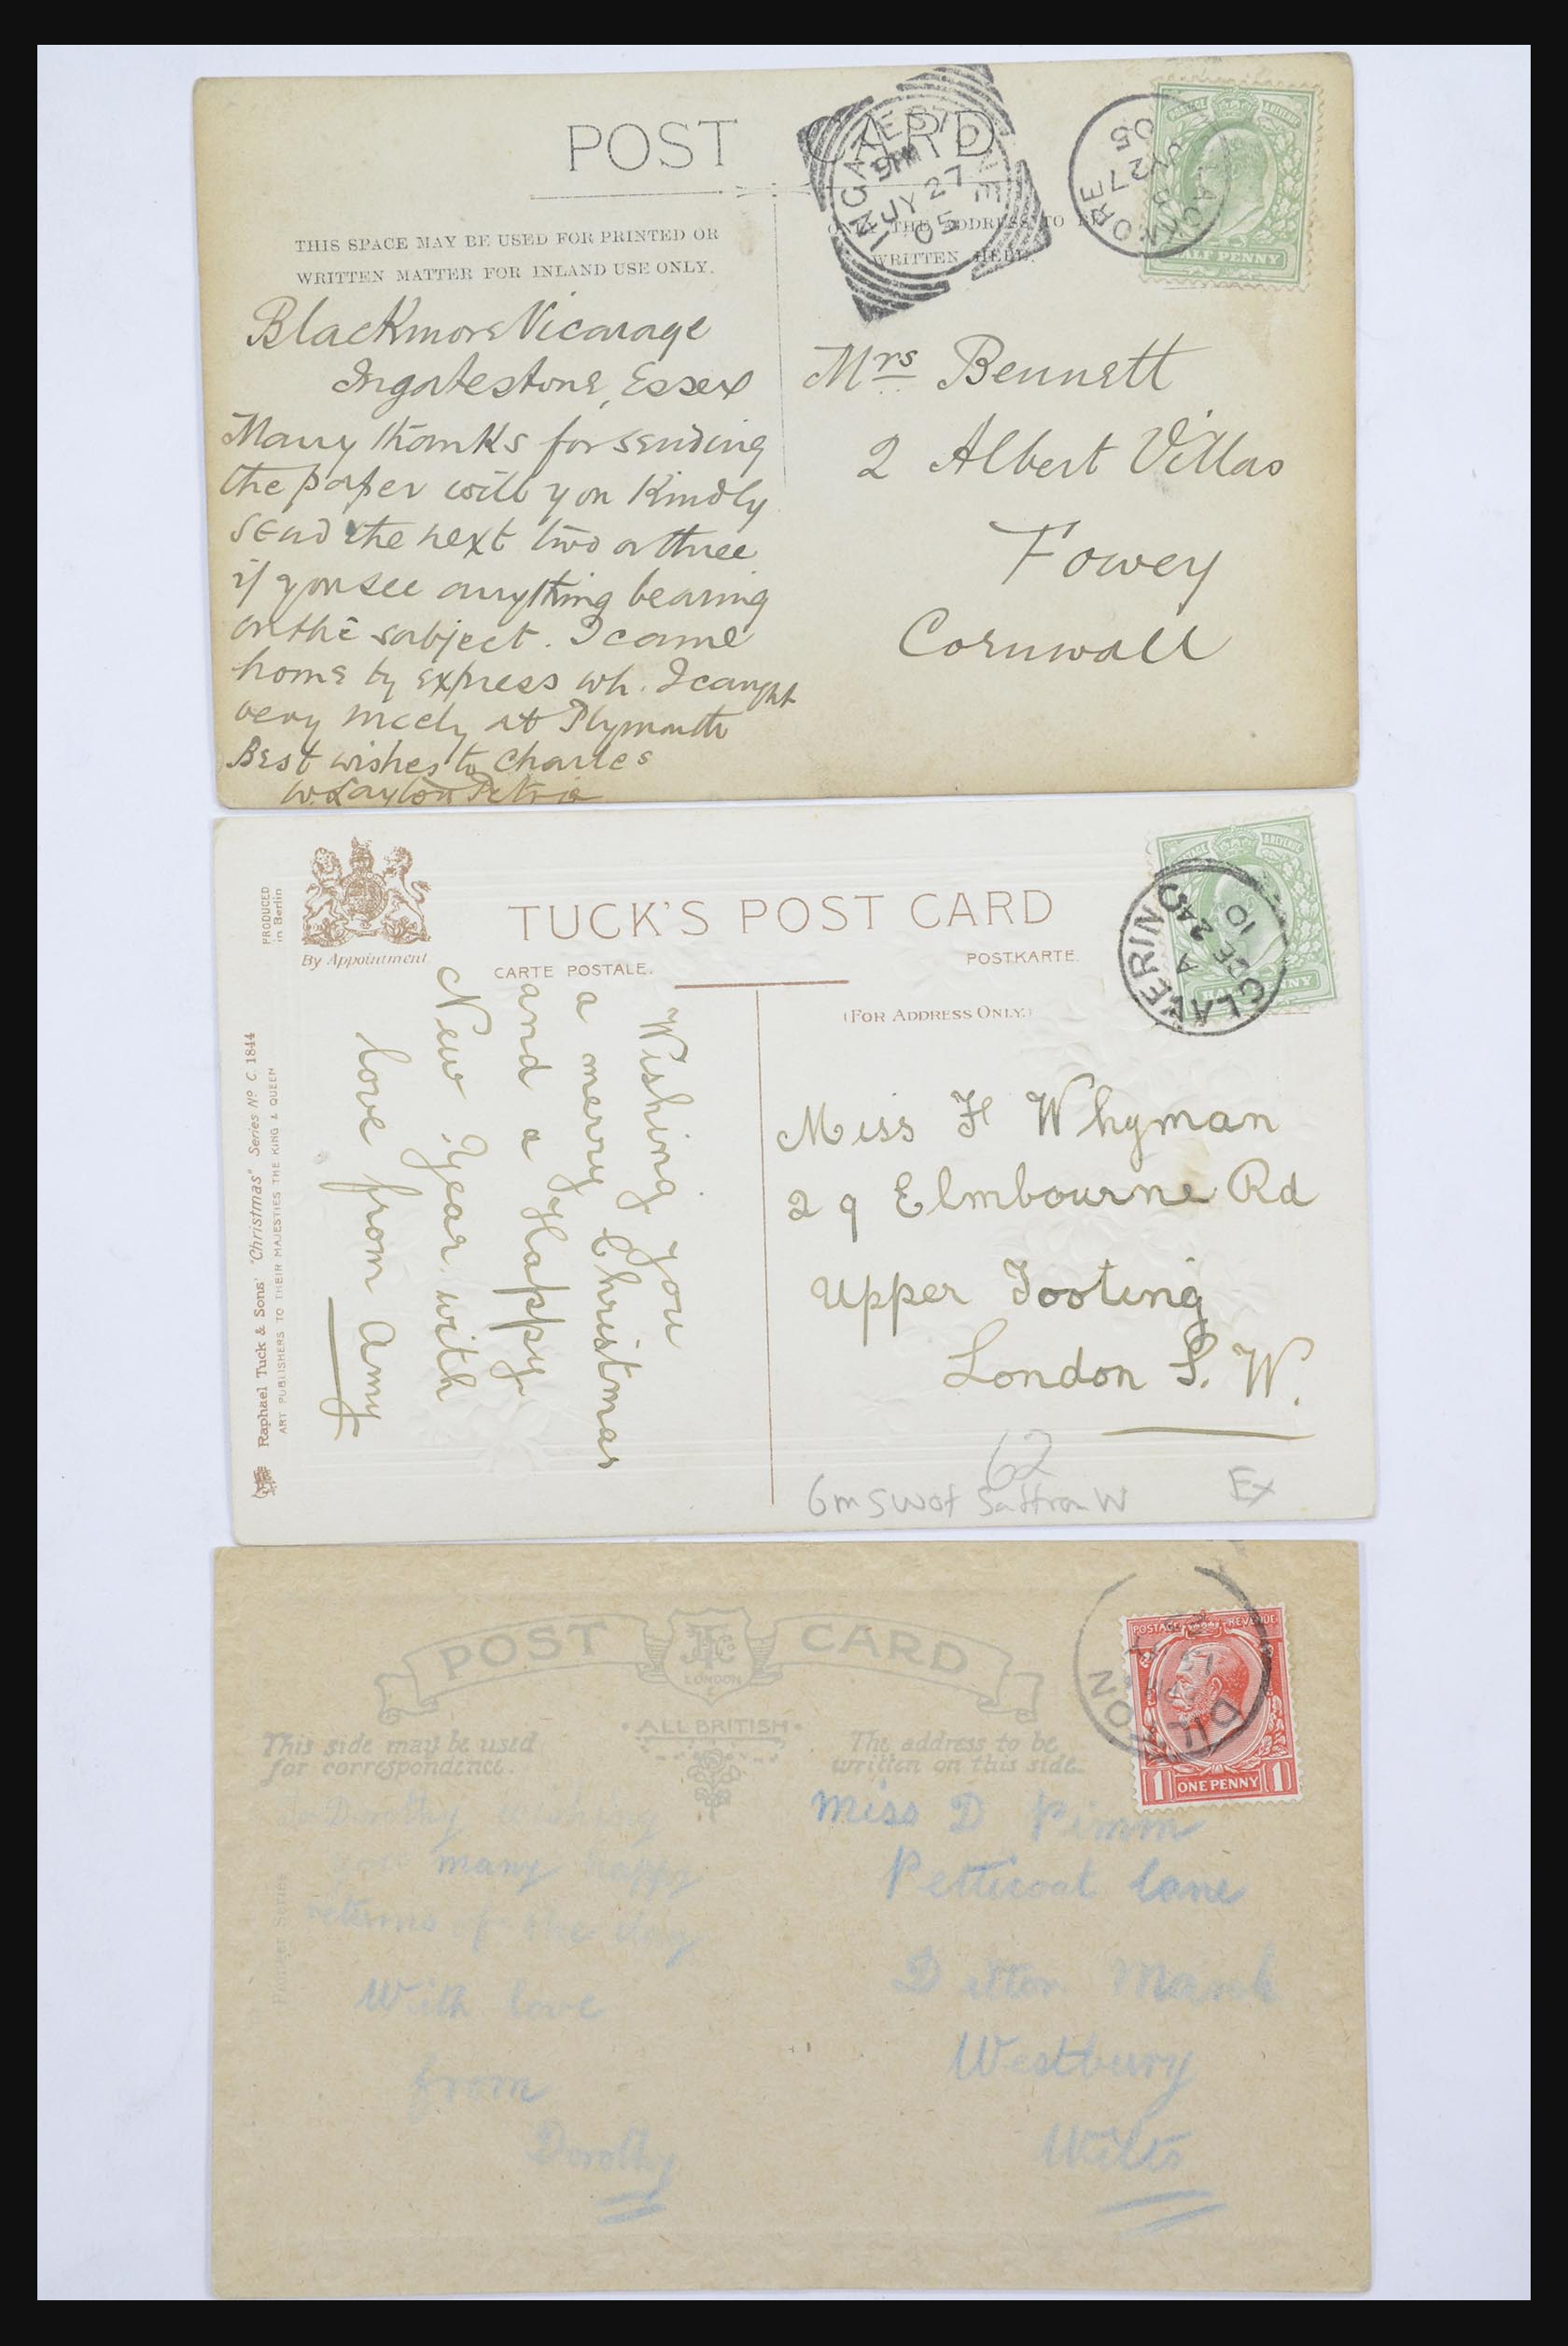 POST CARD
THIS SPACE MAY BE USED FOR PRINTED OR
WRITTEN MATTER FOR INLAND USE ONLY.
ONLY THE ADDRESS TO BE
WRITTEN HERE.
INGATESTONE
9 PM
JY 27
05
BLACKMORE
JY 27
05
HALF PENNY
Blackmore Vicarage
Ingatestone, Essex
Many thanks for sending
the paper will you Kindly
send the next two or three
if you see anything bearing
on the subject. I came
home by express wh. I caught
very nicely at Plymouth
Best wishes to Charles
W. Layton Petrie
Mrs Bennett
2 Albert Villas
Fowey
Cornwall
PRODUCED
in Berlin
By Appointment
TUCK'S POST CARD
CARTE POSTALE.
POSTKARTE.
(FOR ADDRESS ONLY.)
CLAVERING
A
DE 24
10
Raphael Tuck & Sons' "Christmas" Series No C. 1844
ART PUBLISHERS TO THEIR MAJESTIES THE KING & QUEEN
Wishing you
a merry Christmas
and a Happy
New Year with
love from Amy
Miss F Whyman
29 Elmbourne Rd
Upper Tooting
London S. W.
62
6m SW of Saffron W
Ex
POST CARD
LONDON
• ALL BRITISH •
This side may be used
for correspondence
The address to be
written on this side.
POSTAGE REVENUE
1 ONE PENNY 1
DILTON
To Dorothy Wishing
you many happy
returns of the day
With love
from
Dorothy
Miss D Pimm
Petticoat Lane
Dilton Marsh
Westbury
Wilts